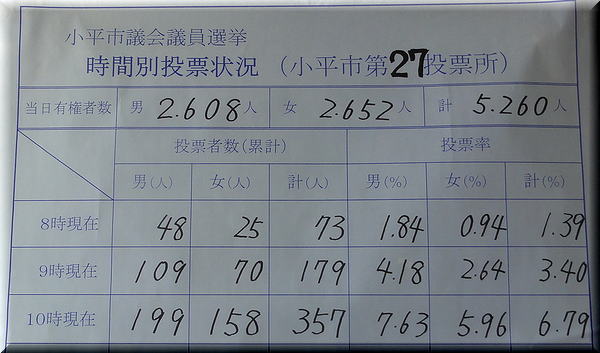 小平市議会議員選挙
時間別投票状況 (小平市第27投票所)
当日有権者数 男 2.608人 女 2.652人 計 5.260人
投票者数(累計) 投票率
男(人) 女(人) 計(人) 男(%) 女(%) 計(%)
8時現在 48 25 73 1.84 0.94 1.39
9時現在 109 70 179 4.18 2.64 3.40
10時現在 199 158 357 7.63 5.96 6.79